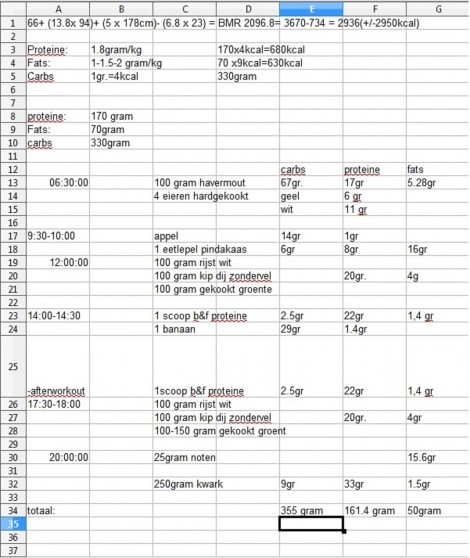 A B C D E F G
1 66+ (13.8x 94)+ (5 x 178cm)- (6.8 x 23) = BMR 2096.8= 3670-734 = 2936(+/-2950kcal)
2
3 Proteine: 1.8gram/kg 170x4kcal=680kcal
4 Fats: 1-1.5-2 gram/kg 70 x9kcal=630kcal
5 Carbs 1gr.=4kcal 330gram
6
7
8 proteine: 170 gram
9 Fats: 70gram
10 carbs 330gram
11
12 carbs proteine fats
13 06:30:00 100 gram havermout 67gr. 17gr 5.28gr
14 4 eieren hardgekookt geel 6 gr
15 wit 11 gr
16
17 9:30-10:00 appel 14gr 1gr
18 1 eetlepel pindakaas 6gr 8gr 16gr
19 12:00:00 100 gram rijst wit
20 100 gram kip dij zondervel 20gr. 4g
21 100 gram gekookt groente
22
23 14:00-14:30 1 scoop b&f proteine 2.5gr 22gr 1,4 gr
24 1 banaan 29gr 1.4gr
25 -afterworkout 1scoop b&f proteine 2.5gr 22gr 1,4 gr
26 17:30-18:00 100 gram rijst wit
27 100 gram kip dij zondervel 20gr. 4gr
28 100-150 gram gekookt groent
29
30 20:00:00 25gram noten 15.6gr
31
32 250gram kwark 9gr 33gr 1.5gr
33
34 totaal: 355 gram 161.4 gram 50gram
35
36
37